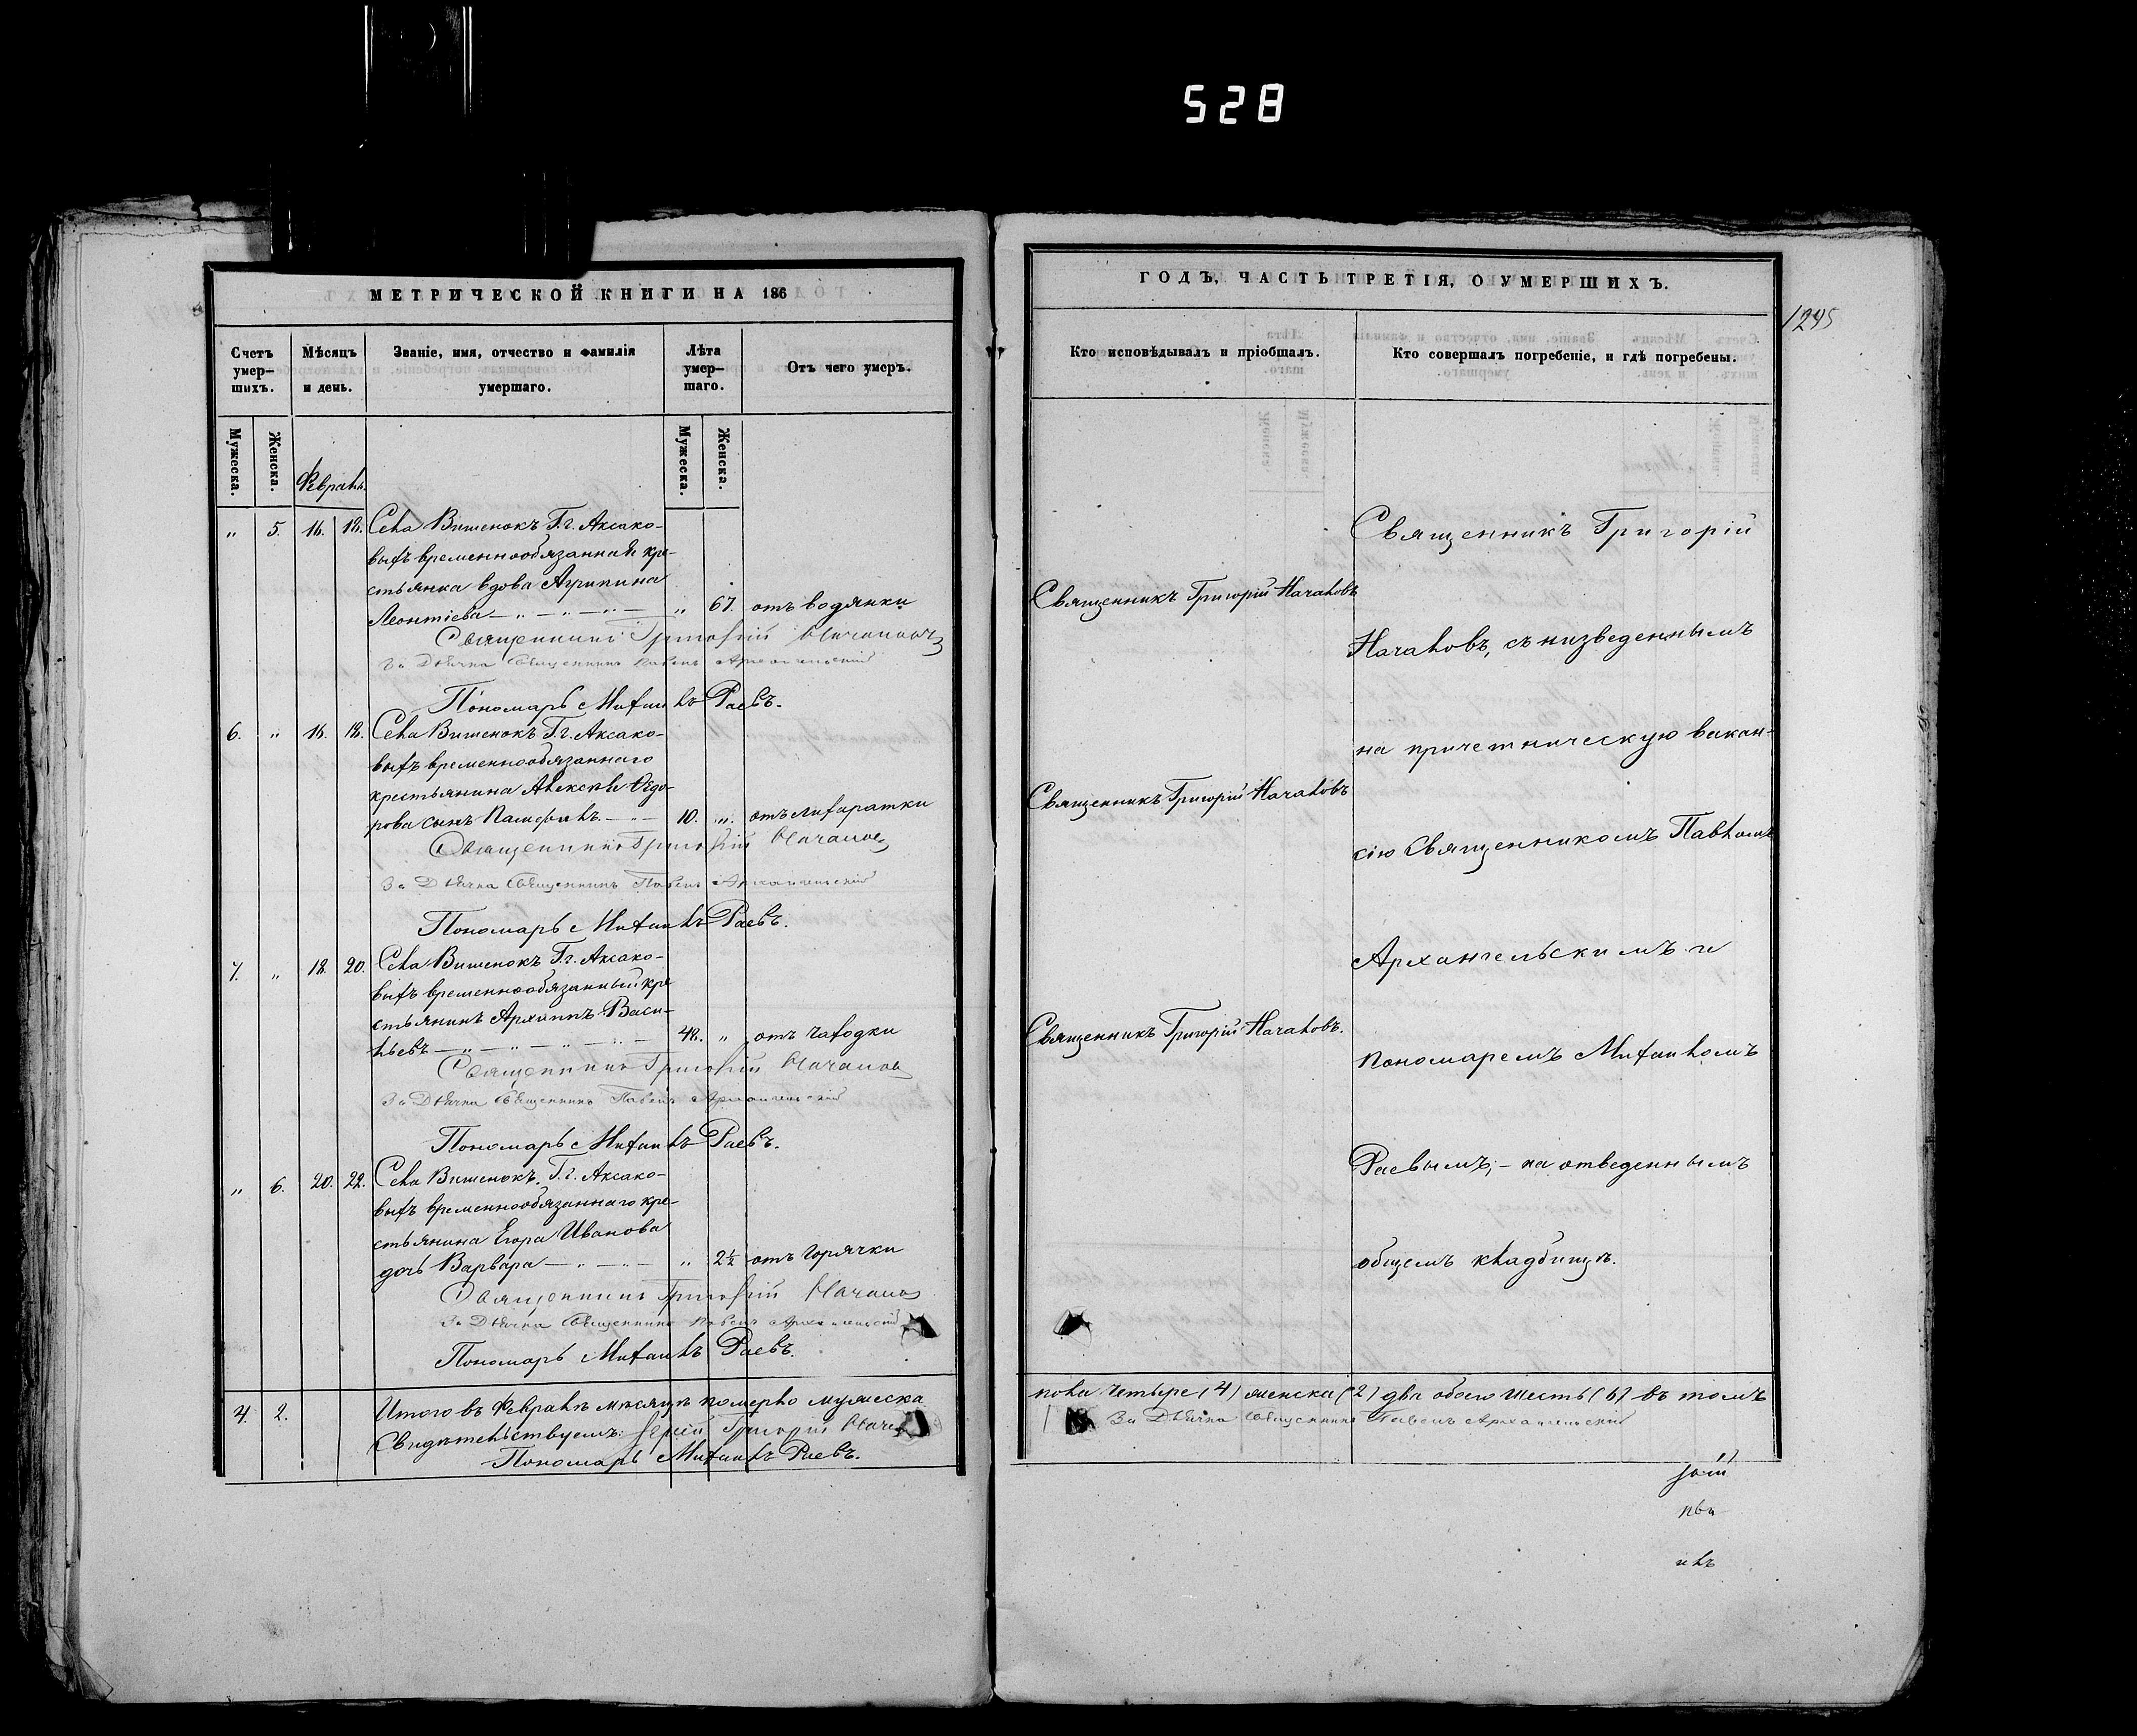 528
МЕТРИЧЕСКОЙ КНИГИ НА 186
Счетъ умер–шихъ.
Мѣсяцъ и день.
Званіе, имя, отчество и фамилія умершаго.
Лѣта умер–шаго.
Отъ чего умеръ.
Мужеска.
Женска.
Мужеска.
Женска.
Февраль.
„ 5. 16. 18. Села Вишенокъ Г. г. Аксако-
выхъ временнообязанная кре-
стьянка вдова Агрипина
Леонтіева — „ — „ — „ — „ 67. отъ водянки
Священникъ Григорій Началовъ
За Дьячка Священникъ Павелъ Архангельскій
Пономарь Михаилъ Раевъ.
6. „ 16. 18. Села Вишенокъ Г. г. Аксако-
выхъ временнообязаннаго
крестьянина Алексѣя Ѳедо-
рова сынъ Памфилъ. — „ — 10. „ отъ лихоратки
Священникъ Григорій Началовъ
За Дьячка Священникъ Павелъ Архангельскій
Пономарь Михаилъ Раевъ.
7. „ 18. 20. Села Вишенокъ Г. г. Аксако-
выхъ временнообязанный кре
стьянинъ Архиппъ Васи-
льевъ — „ — „ — „ — „ — 48. „ отъ чаходки
Священникъ Григорій Началовъ
За Дьячка Священникъ Павелъ Архангельскій
Пономарь Михаилъ Раевъ.
„ 6. 20. 22. Села Вишенокъ. Г. г. Аксако-
выхъ временнообязаннаго кре-
стьянина Егора Иванова
дочь Варвара — „ — „ — „ 2½ отъ горячки
Священникъ Григорій Началовъ
За Дьячка Священникъ Павелъ Архангельскій
Пономарь Михаилъ Раевъ.
4. 2. Итого въ Февралѣ мѣсяцѣ померло мужеска
Свидѣтельствуемъ: Іерей Григорій
Пономарь Михаилъ Раевъ.
ГОДЪ, ЧАСТЬ ТРЕТІЯ, О УМЕРШИХЪ.
1295
Кто исповѣдывалъ и пріобщалъ.
Кто совершалъ погребеніе, и гдѣ погребены.
Священникъ Григорій Началовъ
Священникъ Григорій Началовъ
Священникъ Григорій Началовъ.
Священникъ Григорій
Началовъ, съ низведеннымъ
на причетническую вакан-
сію Священникомъ Павломъ
Архангельскимъ и
пономаремъ Михаиломъ
Раевымъ; – на отведенномъ
общемъ кладбищѣ.
пола четыре (4) женска (2) два обоего шесть (6) въ томъ
За Дьячка Священникъ Павелъ Архангельскій